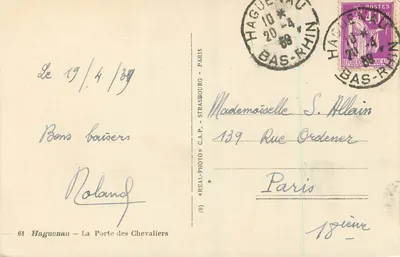 Le 19/4/39
Bons baisers
Roland
61 Haguenau — La Porte des Chevaliers
(9) «REAL-PHOTO» C.A.P. - STRASBOURG - PARIS
HAGUENAU
10 *
20 -4
39
BAS-RHIN
HAGUENAU
10 *
20 -4
BAS-RHIN
Mademoiselle S. Allain
139 Rue Ordener
Paris
18ième